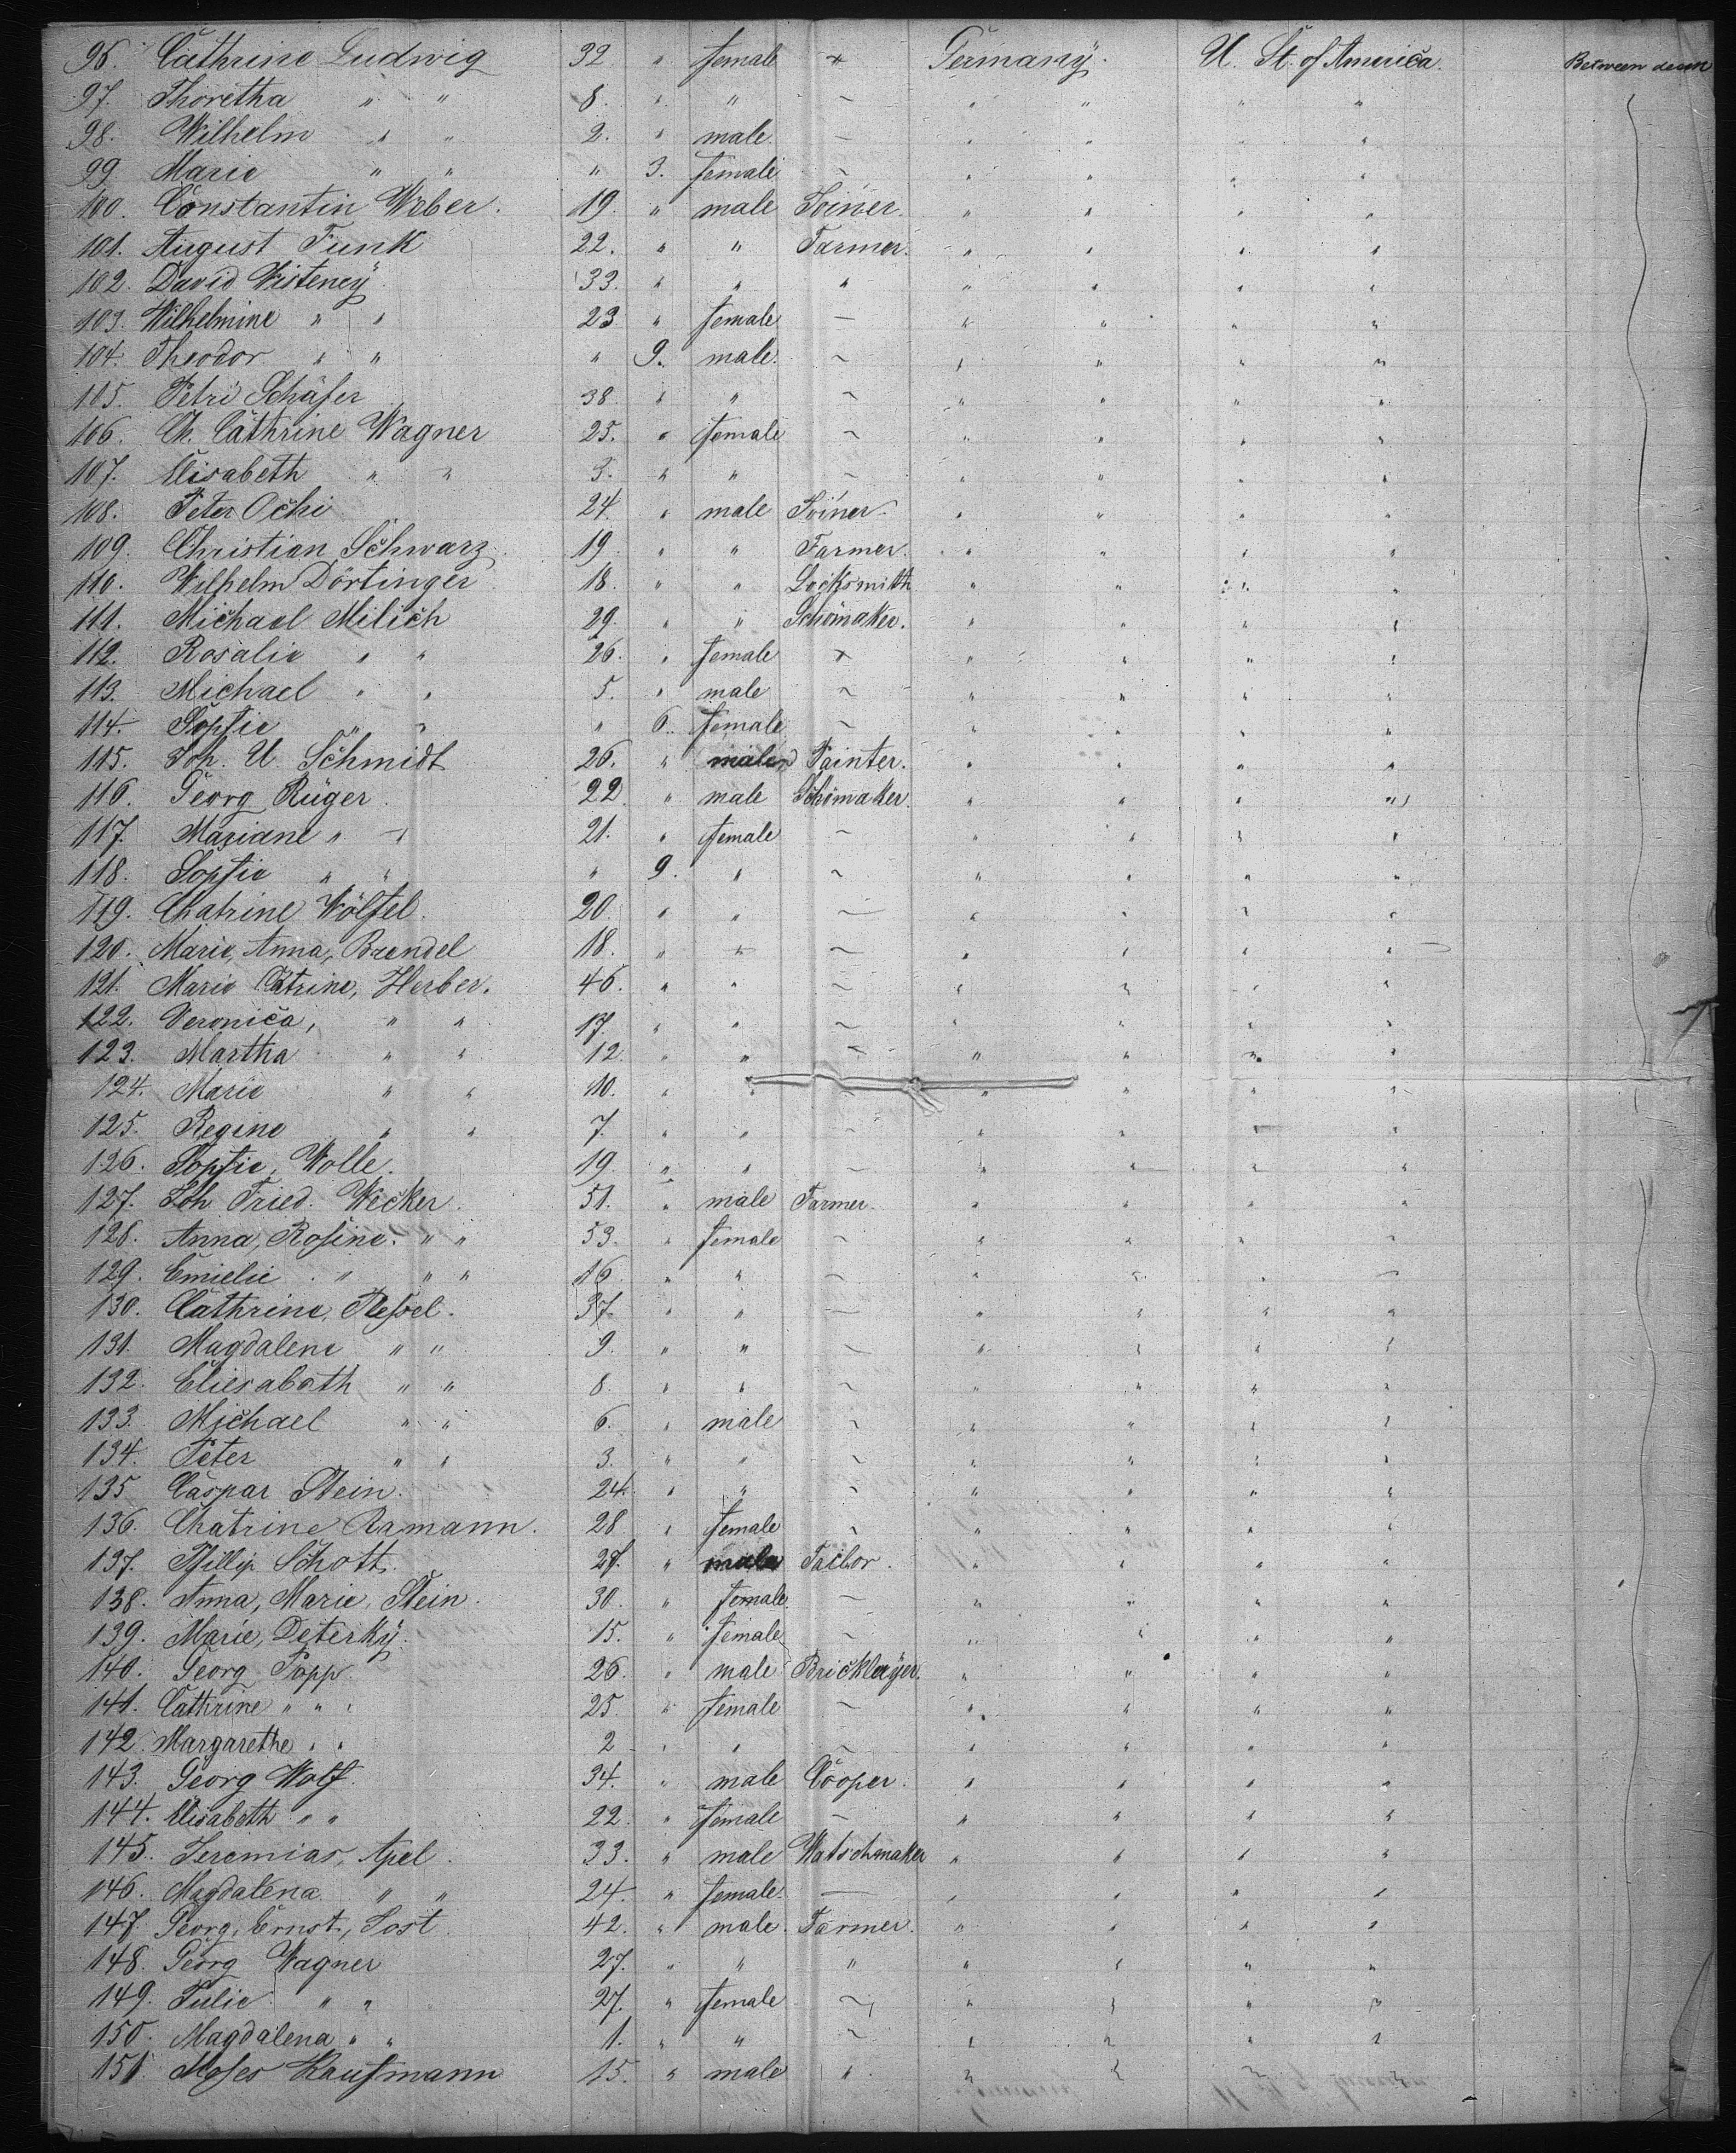 96. Cathrine Ludwig 32 " female + Germany. U. St. of America. Between deck
97. Thoretha " " 8. " " ~ " " " "
98. Wilhelm " " 2. " male. ~ " " " "
99. Marie " " " 3. female ~ " " " "
100. Constantin Weber. 19. " male Joiner. " " " "
101. August Funk 22. " " Farmer. " " " "
102. David Wisteney 33. " " " " " " "
103. Wilhelmine " " 23 " female — " " " "
104. Theodor " " " 9. male. ~ " " " "
105. Petri Schäfer 38. " " ~ " " " "
106. Ch. Cathrine Wagner 25. " female ~ " " " "
107. Elisabeth " " 3. " " ~ " " " "
108. Peter Ochi 24. " male Joiner. " " " "
109. Christian Schwarz. 19. " " Farmer. " " " "
110. Wilhelm Dörtinger 18. " " Locksmith " " " "
111. Michael Milich 29. " " Schomaker. " " " "
112. Rosalie " " 26. " female + " " " "
113. Michael " " 5. " male ~ " " " "
114. Sopfie " " " 6. female ~ " " " "
115. Joh. U. Schmidt 26. " male Painter. " " " "
116. Georg Rüger. 22 " male Schomaker. " " " "
117. Mariane " " 21. " female ~ " " " "
118. Sopfie " " " 9. " ~ " " " "
119. Chatrine Wölfel. 20. " " ~ " " " "
120. Marie, Anna, Brendel 18. " " ~ " " " "
121. Marie Catrine, Herber. 46. " " ~ " " " "
122. Veronica, " " 17. " " ~ " " " "
123. Martha " " 12. " " ~ " " " "
124. Marie " " 10. " " ~ " " " "
125. Regine " " 7. " " ~ " " " "
126. Sopfie, Wolle. 19. " " ~ " " " "
127. Joh. Fried. Wecker. 51. " male Farmer. " " " "
128. Anna, Rosine. " " 53. " female ~ " " " "
129. Emielie. " " " 16. " " ~ " " " "
130. Cathrine, Stessel. 37. " " ~ " " " "
131. Magdalene " " 9. " " ~ " " " "
132. Eliesabath " " 8. " " ~ " " " "
133. Michael " " 6. " male ~ " " " "
134. Peter " " 3. " " ~ " " " "
135. Caspar Stein. 24. " " ~ " " " "
136. Chatrine Ramann. 28 " female ~ " " " "
137. Pfillip Schott. 27. " male Tailor. " " " "
138. Anna, Marie, Stein. 30. " female. ~ " " " "
139. Marie, Deterky. 15. " female ~ " " " "
140. Georg Popp. 26. " male Bricklayer. " " " "
141. Cathrine " " " 25. " female ~ " " " "
142. Margarethe " " 2 " " ~ " " " "
143. Georg Wolf. 34. " male Cooper. " " " "
144. Elisabeth " " 22. " female ~ " " " "
145. Jeremias, Apel. 33. " male Watschmaker " " " "
146. Magdalena " " 24. " female. — " " " "
147. Georg, Ernst, Jost. 42. " male. Farmer. " " " "
148. Georg Wagner 27. " " " " " " "
149. Julie " " 27. " female ~ " " " "
150. Magdalena " " 1. " " ~ " " " "
151. Moses Kaufmann 15. " male " " " " "